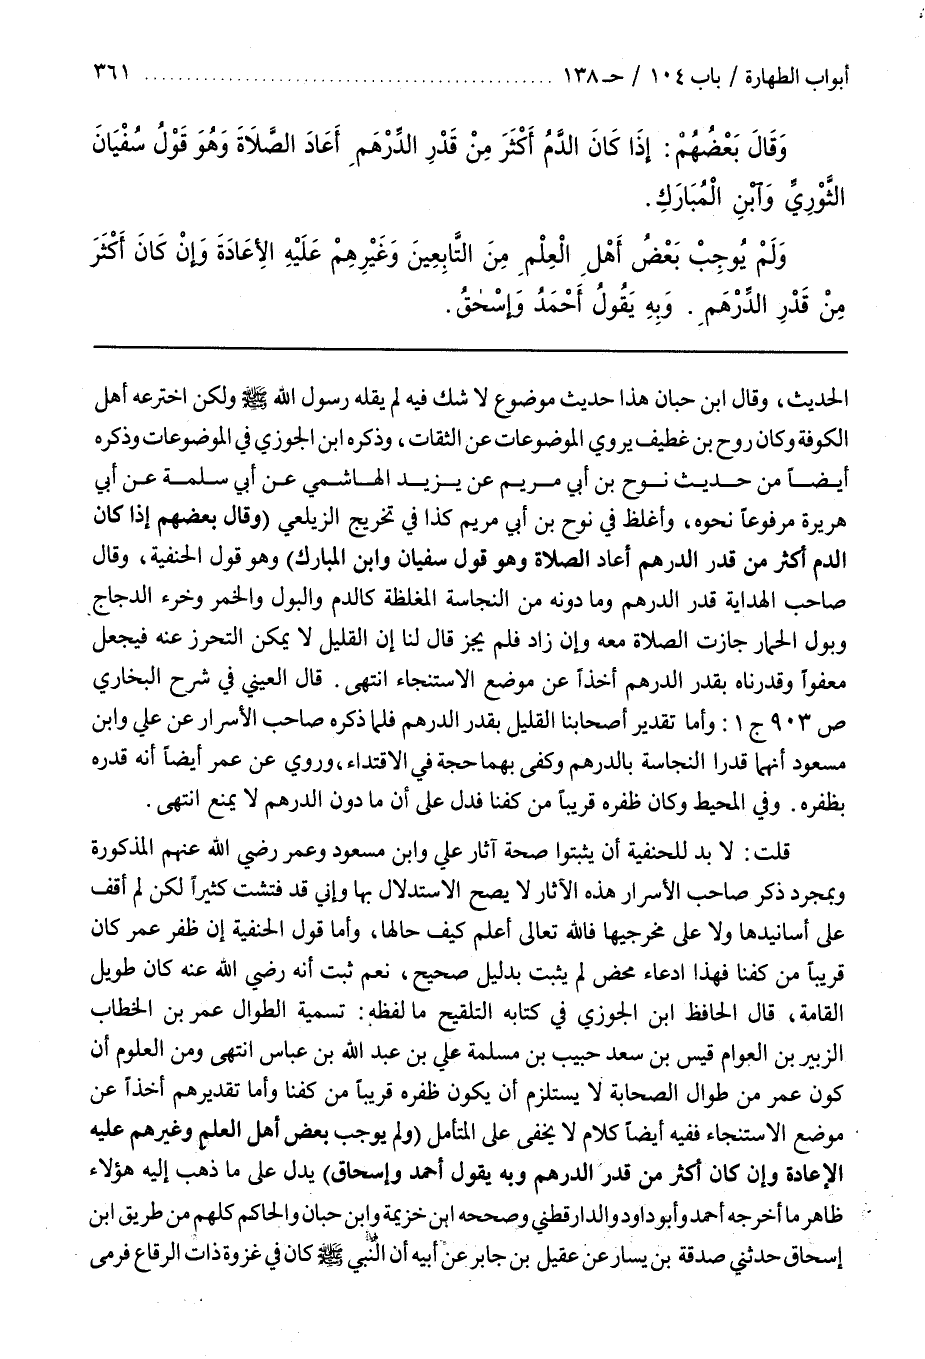 أبواب الطهارة / باب ١٠٤ / حـ ١٣٨ ................................................ ٣٦١
وَقَالَ بَعْضُهُمْ: إِذَا كَانَ الدَّمُ أَكْثَرَ مِنْ قَدْرِ الدِّرْهَمِ أَعَادَ الصَّلَاةَ وَهُوَ قَوْلُ سُفْيَانَ
الثَّوْرِيِّ وَآبْنِ الْمُبَارَكِ.
وَلَمْ يُوجِبْ بَعْضُ أَهْلِ الْعِلْمِ مِنَ التَّابِعِينَ وَغَيْرِهِمْ عَلَيْهِ الإِعَادَةَ وَإِنْ كَانَ أَكْثَرَ
مِنْ قَدْرِ الدِّرْهَمِ. وَبِهِ يَقُولُ أَحْمَدُ وَإِسْحٰقُ.
الحديث، وقال ابن حبان هذا حديث موضوع لا شك فيه لم يقله رسول الله ﷺ ولكن اخترعه أهل
الكوفة وكان روح بن غطيف يروي الموضوعات عن الثقات، وذكره ابن الجوزي في الموضوعات وذكره
أيضاً من حديث نوح بن أبي مريم عن يزيد الهاشمي عن أبي سلمة عن أبي
هريرة مرفوعاً نحوه، وأغلظ في نوح بن أبي مريم كذا في تخريج الزيلعي (وقال بعضهم إذا كان
الدم أكثر من قدر الدرهم أعاد الصلاة وهو قول سفيان وابن المبارك) وهو قول الحنفية، وقال
صاحب الهداية قدر الدرهم وما دونه من النجاسة المغلظة كالدم والبول والخمر وخرء الدجاج
وبول الحمار جازت الصلاة معه وإن زاد فلم يجز قال لنا إن القليل لا يمكن التحرز عنه فيجعل
معفواً وقدرناه بقدر الدرهم أخذاً عن موضع الاستنجاء انتهى. قال العيني في شرح البخاري
ص ٩٠٣ ج ١: وأما تقدير أصحابنا القليل بقدر الدرهم فلما ذكره صاحب الأسرار عن علي وابن
مسعود أنهما قدرا النجاسة بالدرهم وكفى بهما حجة في الاقتداء، وروي عن عمر أيضاً أنه قدره
بظفره. وفي المحيط وكان ظفره قريباً من كفنا فدل على أن ما دون الدرهم لا يمنع انتهى.
قلت: لا بد للحنفية أن يثبتوا صحة آثار علي وابن مسعود وعمر رضي الله عنهم المذكورة
وبمجرد ذكر صاحب الأسرار هذه الآثار لا يصح الاستدلال بها وإني قد فتشت كثيراً لكن لم أقف
على أسانيدها ولا على مخرجيها فالله تعالى أعلم كيف حالها، وأما قول الحنفية إن ظفر عمر كان
قريباً من كفنا فهذا ادعاء محض لم يثبت بدليل صحيح، نعم ثبت أنه رضي الله عنه كان طويل
القامة، قال الحافظ ابن الجوزي في كتابه التلقيح ما لفظه: تسمية الطوال عمر بن الخطاب
الزبير بن العوام قيس بن سعد حبيب بن مسلمة علي بن عبد الله بن عباس انتهى ومن العلوم أن
كون عمر من طوال الصحابة لا يستلزم أن يكون ظفره قريباً من كفنا وأما تقديرهم أخذاً عن
موضع الاستنجاء ففيه أيضاً كلام لا يخفى على المتأمل (ولم يوجب بعض أهل العلم وغيرهم عليه
الإعادة وإن كان أكثر من قدر الدرهم وبه يقول أحمد وإسحاق) يدل على ما ذهب إليه هؤلاء
ظاهر ما أخرجه أحمد وأبو داود والدارقطني وصححه ابن خزيمة وابن حبان والحاكم كلهم من طريق ابن
إسحاق حدثني صدقة بن يسار عن عقيل بن جابر عن أبيه أن النبي ﷺ كان في غزوة ذات الرقاع فرمى